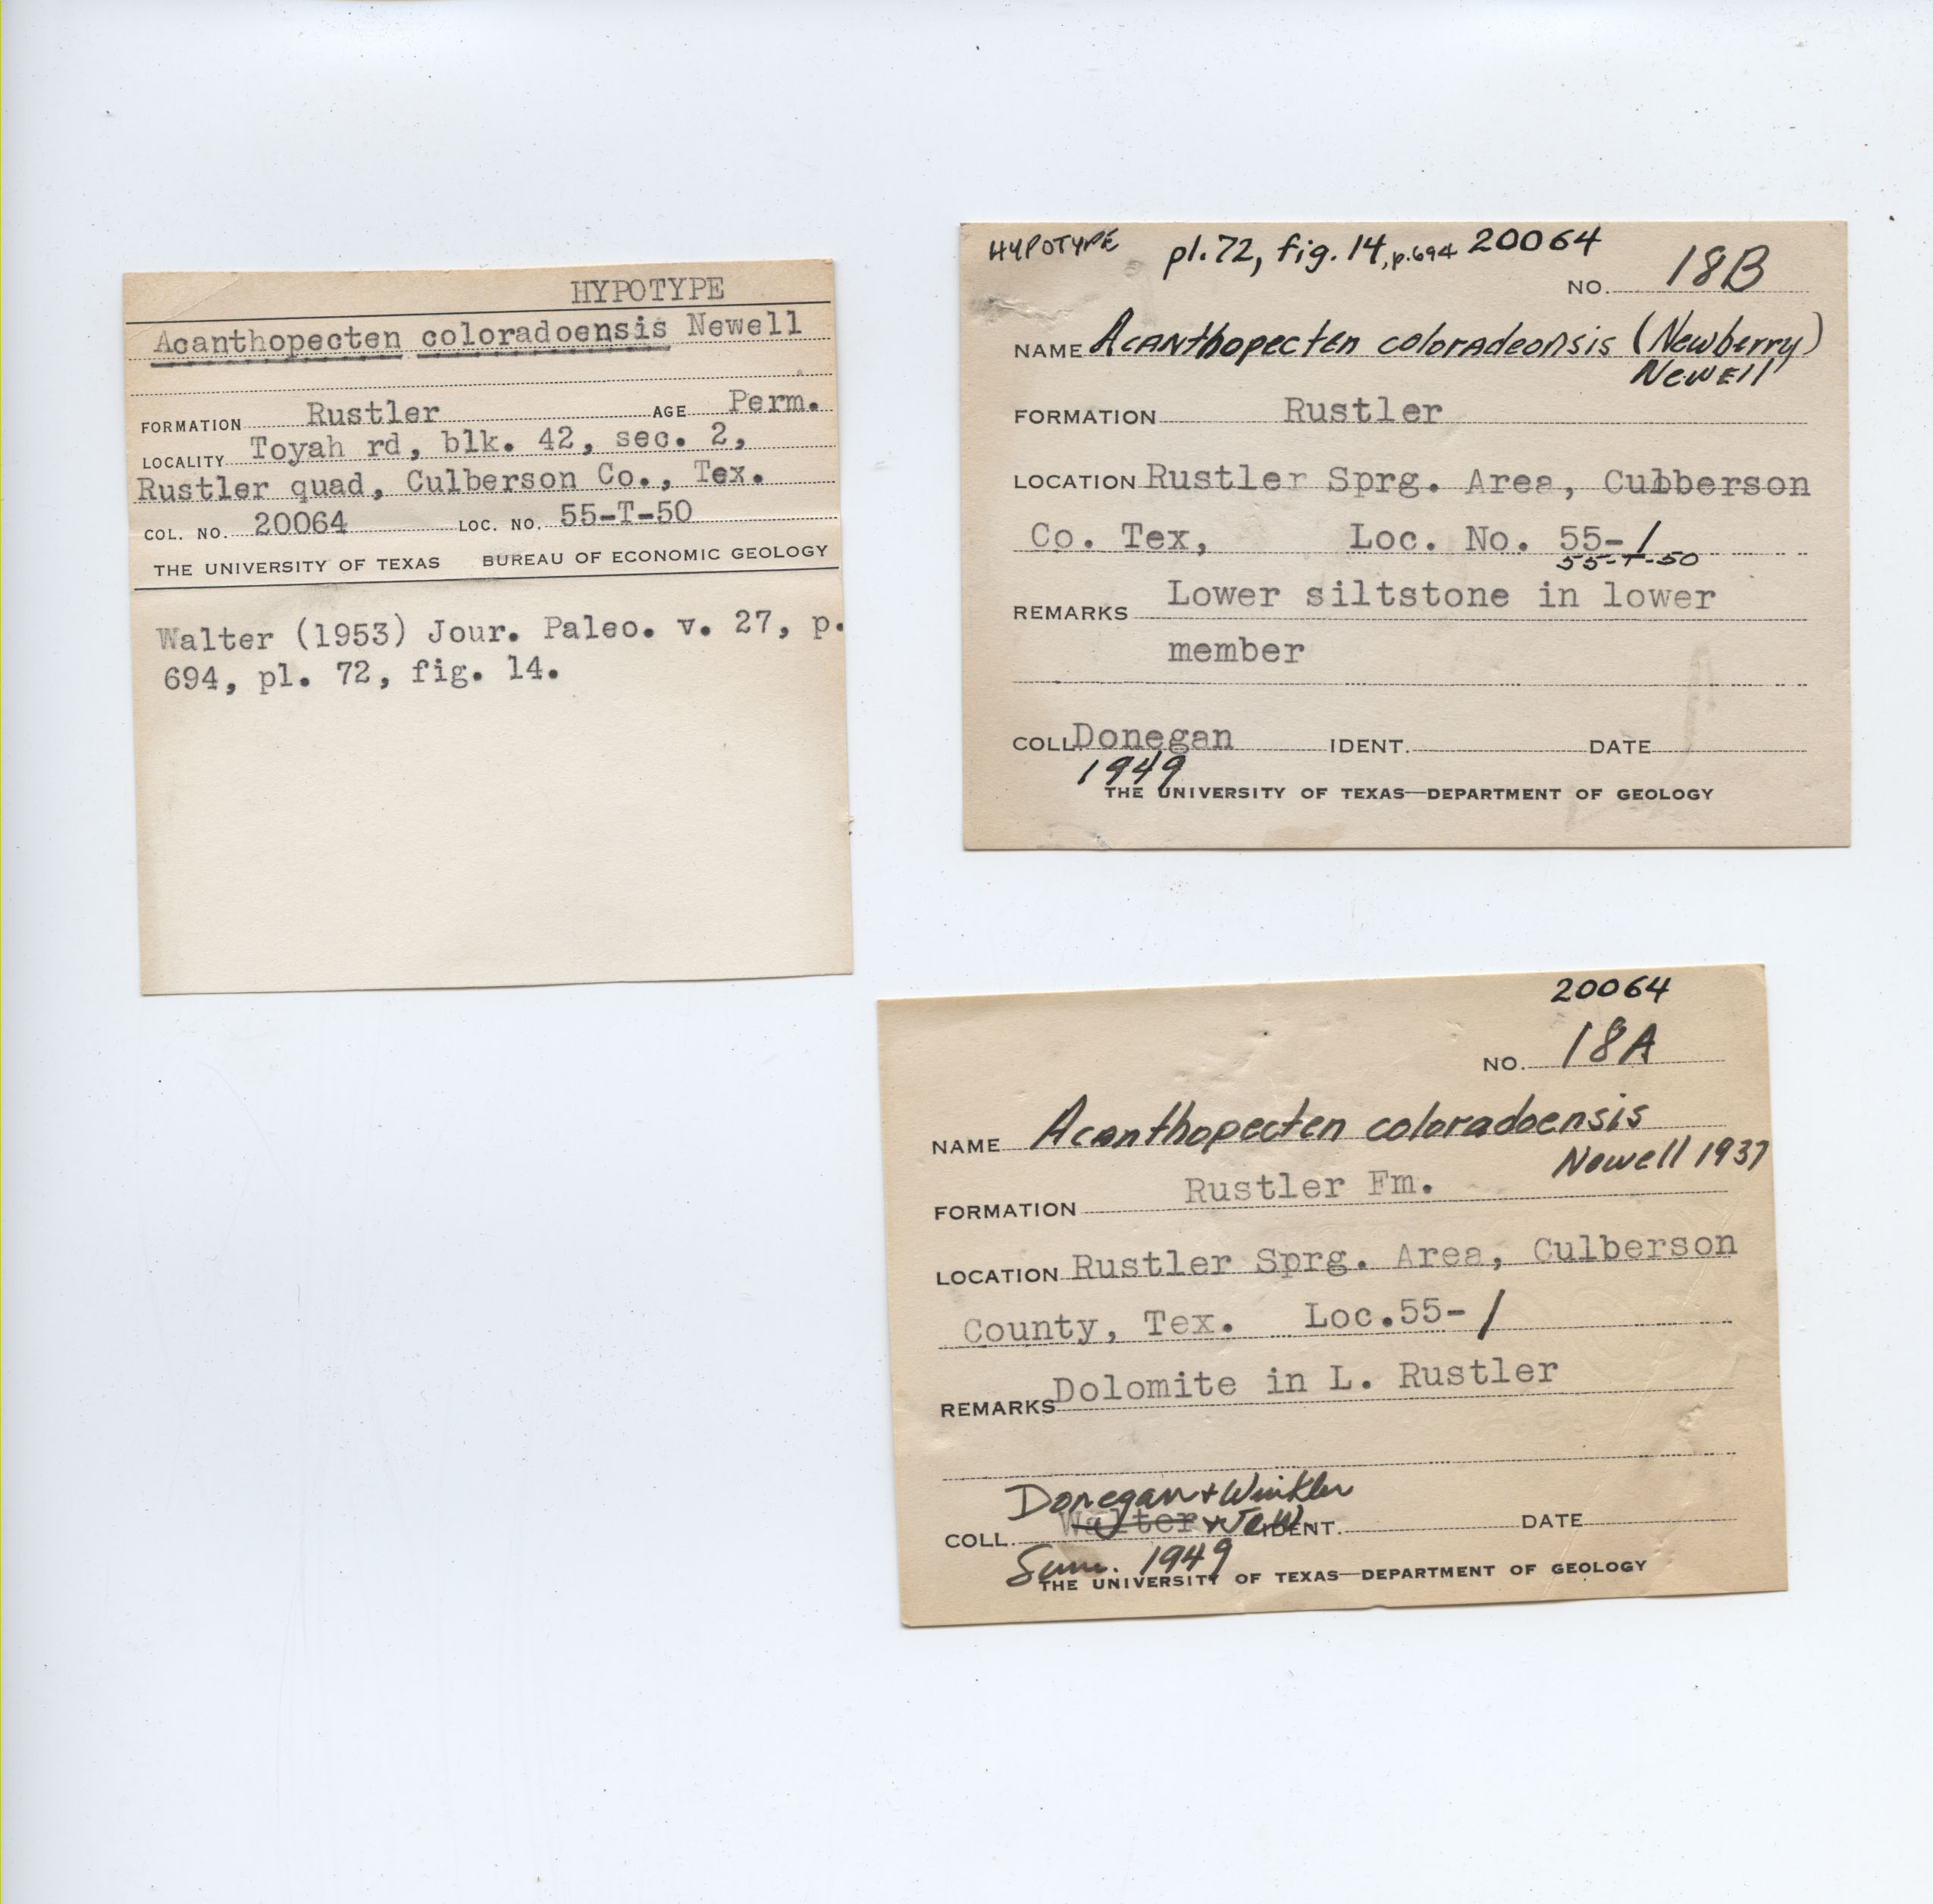 HYPOTYPE
Acanthopecten coloradoensis Newell
FORMATION Rustler AGE Perm.
LOCALITY Toyah rd, blk. 42, sec. 2,
Rustler quad, Culberson Co., Tex.
COL. NO. 20064 LOC. NO. 55-T-50
THE UNIVERSITY OF TEXAS BUREAU OF ECONOMIC GEOLOGY
Walter (1953) Jour. Paleo. v. 27, p.
694, pl. 72, fig. 14.
HYPOTYPE pl. 72, fig. 14, p. 694 20064
NO. 18B
NAME Acanthopecten coloradeonsis (Newberry)
Newell
FORMATION Rustler
LOCATION Rustler Sprg. Area, Culberson
Co. Tex, Loc. No. 55-1
55-T-50
REMARKS Lower siltstone in lower
member
COLL. Donegan IDENT. DATE
1949
THE UNIVERSITY OF TEXAS—DEPARTMENT OF GEOLOGY
20064
NO. 18A
NAME Acanthopecten coloradoensis
Newell 1937
FORMATION Rustler Fm.
LOCATION Rustler Sprg. Area, Culberson
County, Tex. Loc. 55-1
REMARKS Dolomite in L. Rustler
Donegan + Winkler
COLL. Walter + JCW IDENT. DATE
Sum. 1949
THE UNIVERSITY OF TEXAS—DEPARTMENT OF GEOLOGY